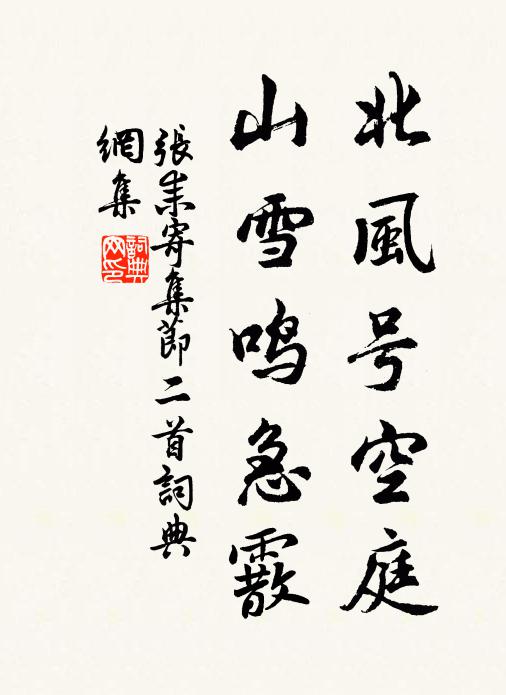 北風号空庭
山雪鸣急霰
張耒寄集節二首詞典
網集
詞典
网印